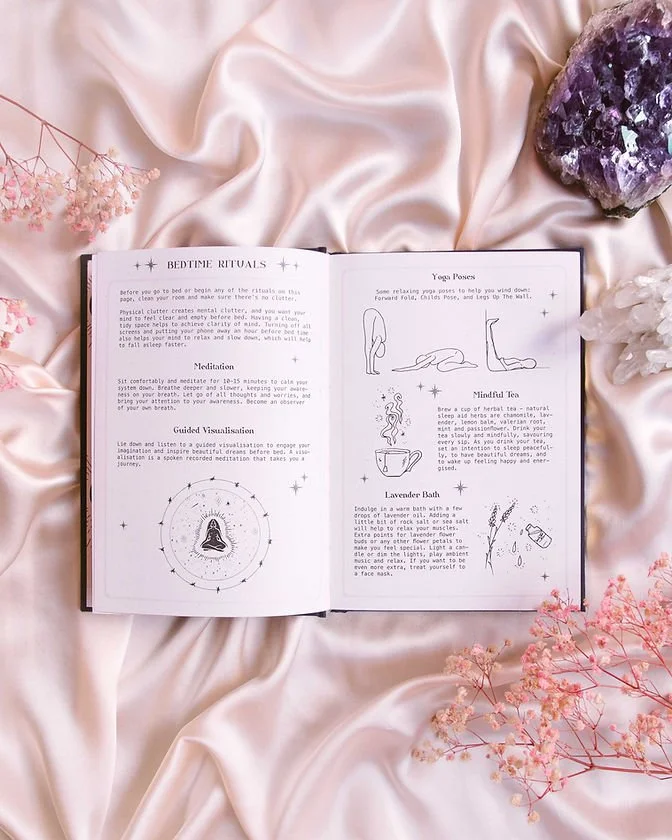 BEDTIME RITUALS
Before you go to bed or begin any of the rituals on this
page, clean your room and make sure there's no clutter.
Physical clutter creates mental clutter, and you want your
mind to feel clear and empty before bed. Having a clean,
tidy space helps to achieve clarity of mind. Turning off all
screens and putting your phone away an hour before bed time
also helps your mind to relax and slow down, which will help
to fall asleep faster.
Meditation
Sit comfortably and meditate for 10-15 minutes to calm your
system down. Breathe deeper and slower, keeping your aware-
ness on your breath. Let go of all thoughts and worries, and
bring your attention to your awareness. Become an observer
of your own breath.
Guided Visualisation
Lie down and listen to a guided visualisation to engage your
imagination and inspire beautiful dreams before bed. A visu-
alisation is a spoken recorded meditation that takes you a
journey.
Yoga Poses
Some relaxing yoga poses to help you wind down:
Forward Fold, Childs Pose, and Legs Up The Wall.
Mindful Tea
Brew a cup of herbal tea - natural
sleep aid herbs are chamomile, lav-
ender, lemon balm, valerian root,
mint and passionflower. Drink your
tea slowly and mindfully, savouring
every sip. As you drink your tea,
set an intention to sleep peaceful-
ly, to have beautiful dreams, and
to wake up feeling happy and ener-
gised.
Lavender Bath
Indulge in a warm bath with a few
drops of lavender oil. Adding a
little bit of rock salt or sea salt
will help to relax your muscles.
Extra points for lavender flower
buds or any other flower petals to
make you feel special. Light a can-
dle or dim the lights, play ambient
music and relax. If you want to be
even more extra, treat yourself to
a face mask.